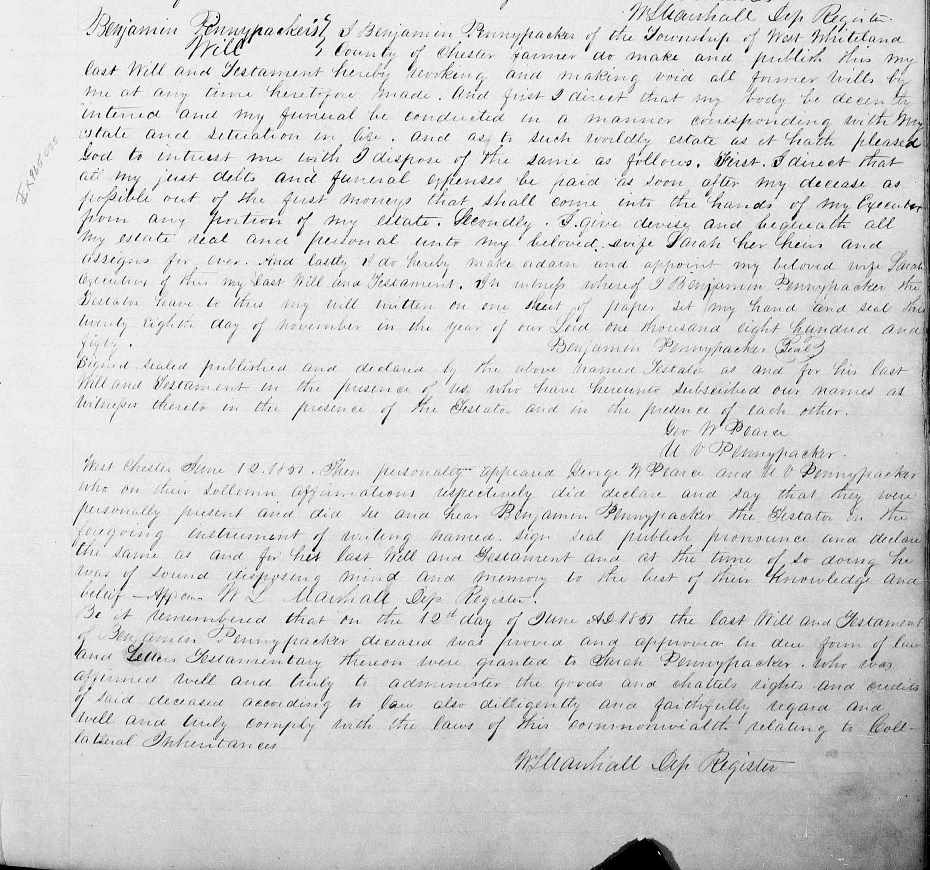 W L Marshall Dep Register
Benjamin Pennypacker's } I Benjamin Pennypacker of the Township of West Whiteland
Will } County of Chester farmer do make and publish this my
last Will and Testament hereby revoking and making void all former wills by
me at any time heretofore made. And first I direct that my body be decently
intered and my funeral be conducted in a manner corresponding with my
estate and situation in life. and as to such worldly estate as it hath pleased
God to intrust me with I dispose of the same as follows. First. I direct that
all my just debts and funeral expenses be paid as soon after my decease as
possible out of the first moneys that shall come into the hands of my Executor
from any portion of my estate. Secondly. I give devise and bequeath all
my estate real and personal unto my beloved wife Sarah her heirs and
assigns for ever. And lastly I do hereby make ordain and appoint my beloved wife Sarah
executrix of this my last Will and Testament. In witness whereof I Benjamin Pennypacker the
Testator have to this my will written on one sheet of paper set my hand and seal this
twenty eighth day of november in the year of our Lord one thousand eight hundred and
fifty. Benjamin Pennypacker {Seal}
Signed sealed published and declared by the above named Testator as and for his last
Will and Testament in the presence of us, who have hereunto subscribed our names as
witnesses thereto in the presence of the Testator and in the presence of each other.
Geo W Pearce
U V Pennypacker.
West Chester June 12. 1851. Then personally appeared George W Pearce and U V Pennypacker
who on their sollemn affirmations respectively did declare and say that they were
personally present and did see and hear Benjamin Pennypacker the Testator in the
foregoing instrument of writing named. sign seal publish pronounce and declare
the same as and for his last Will and Testament and at the time of so doing he
was of sound disposing mind and memory to the best of their knowledge and
belief — W L Marshall Dep Register.
Be it remembered that on the 12th day of June AD. 1851 the last Will and Testament
of Benjamin Pennypacker deceased was proved and approved in due form of law
and Letters Testamentary thereon were granted to Sarah Pennypacker. who was
affirmed well and truly to administer the goods and chattels rights and credits
of said deceased according to law also dilligently and faithfully regard and
well and truly comply with the laws of this commonwealth relating to Coll-
lateral Inheritances
W L Marshall Dep Register